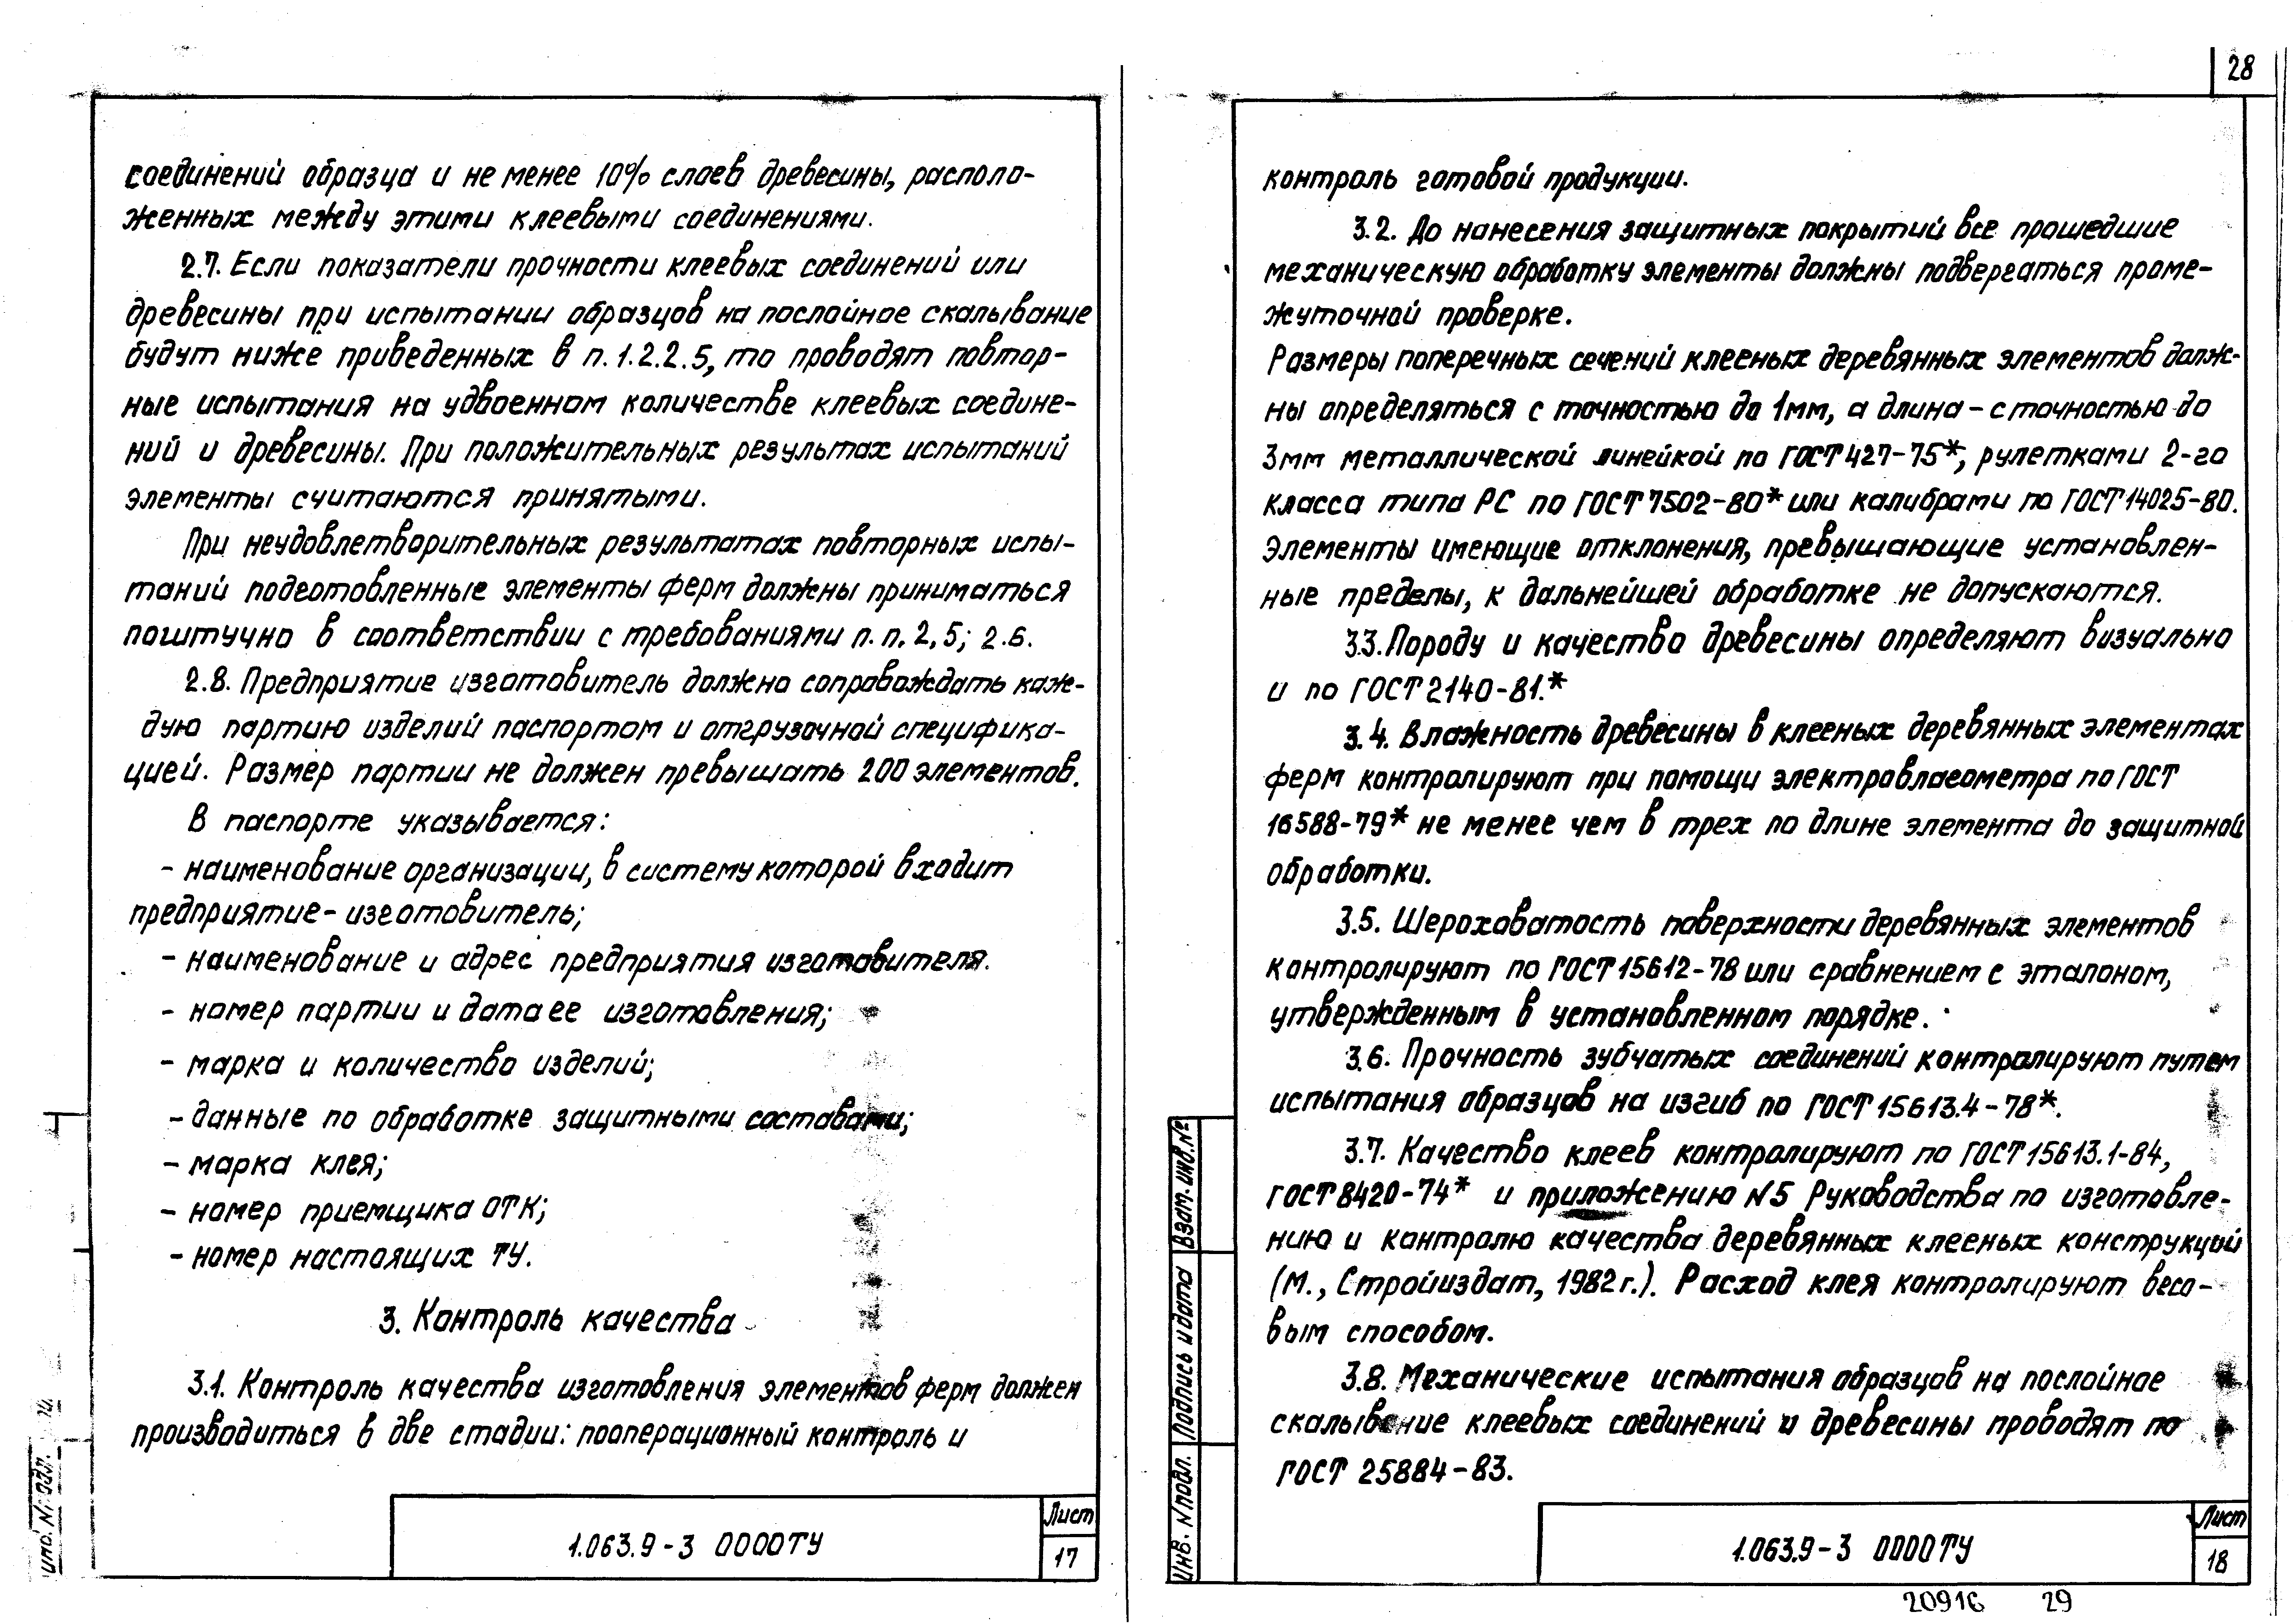 соединений образца и не менее 10% слоев древесины, располо-
женных между этими клеевыми соединениями.
2.7. Если показатели прочности клеевых соединений или
древесины при испытании образцов на послойное скалывание
будут ниже приведенных в п. 1.2.2.5, то проводят повтор-
ные испытания на удвоенном количестве клеевых соедине-
ний и древесины. При положительных результатах испытаний
элементы считаются принятыми.
При неудовлетворительных результатах повторных испы-
таний подготовленные элементы ферм должны приниматься
поштучно в соответствии с требованиями п.п. 2,5; 2.6.
2.8. Предприятие изготовитель должно сопровождать каж-
дую партию изделий паспортом и отгрузочной специфика-
цией. Размер партии не должен превышать 200 элементов.
В паспорте указывается:
- наименование организации, в систему которой входит
предприятие-изготовитель;
- наименование и адрес предприятия изготовителя.
- номер партии и дата ее изготовления;
- марка и количество изделий;
- данные по обработке защитными составами;
- марка клея;
- номер приемщика ОТК;
- номер настоящих ТУ.
3. Контроль качества
3.1. Контроль качества изготовления элементов ферм должен
производиться в две стадии: пооперационный контроль и
1.063.9-3 0000ТУ
Лист
17
28
контроль готовой продукции.
3.2. До нанесения защитных покрытий все прошедшие
механическую обработку элементы должны подвергаться проме-
жуточной проверке.
Размеры поперечных сечений клееных деревянных элементов долж-
ны определяться с точностью до 1мм, а длина - с точностью до
3мм металлической линейкой по ГОСТ 427-75*, рулетками 2-го
класса типа РС по ГОСТ 7502-80* или калибрами по ГОСТ 14025-80.
Элементы имеющие отклонения, превышающие установлен-
ные пределы, к дальнейшей обработке не допускаются.
3.3. Породу и качество древесины определяют визуально
и по ГОСТ 2140-81.*
3.4. Влажность древесины в клееных деревянных элементах
ферм контролируют при помощи электровлагометра по ГОСТ
16588-79* не менее чем в трех по длине элемента до защитной
обработки.
3.5. Шероховатость поверхности деревянных элементов
контролируют по ГОСТ 15612-78 или сравнением с эталоном,
утвержденным в установленном порядке.
3.6. Прочность зубчатых соединений контролируют путем
испытания образцов на изгиб по ГОСТ 15613.4-78*.
3.7. Качество клеев контролируют по ГОСТ 15613.1-84,
ГОСТ 8420-74* и приложению N5 Руководства по изготовле-
нию и контролю качества деревянных клееных конструкций
(М., Стройиздат, 1982 г.). Расход клея контролируют весо-
вым способом.
3.8. Механические испытания образцов на послойное
скалывание клеевых соединений и древесины проводят по
ГОСТ 25884-83.
Взам. инв. №
Подпись и дата
Инв. N подл.
1.063.9-3 0000ТУ
Лист
18
20916 29